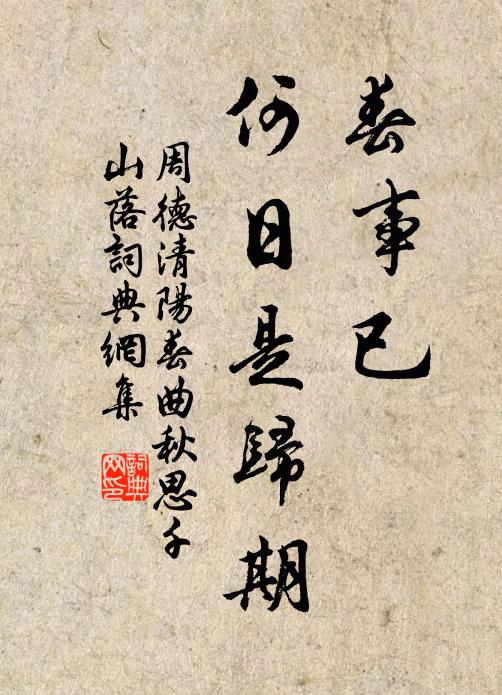 春事已
何日是歸期
周德清陽春曲秋思千
山落詞典網集
詞典
网印